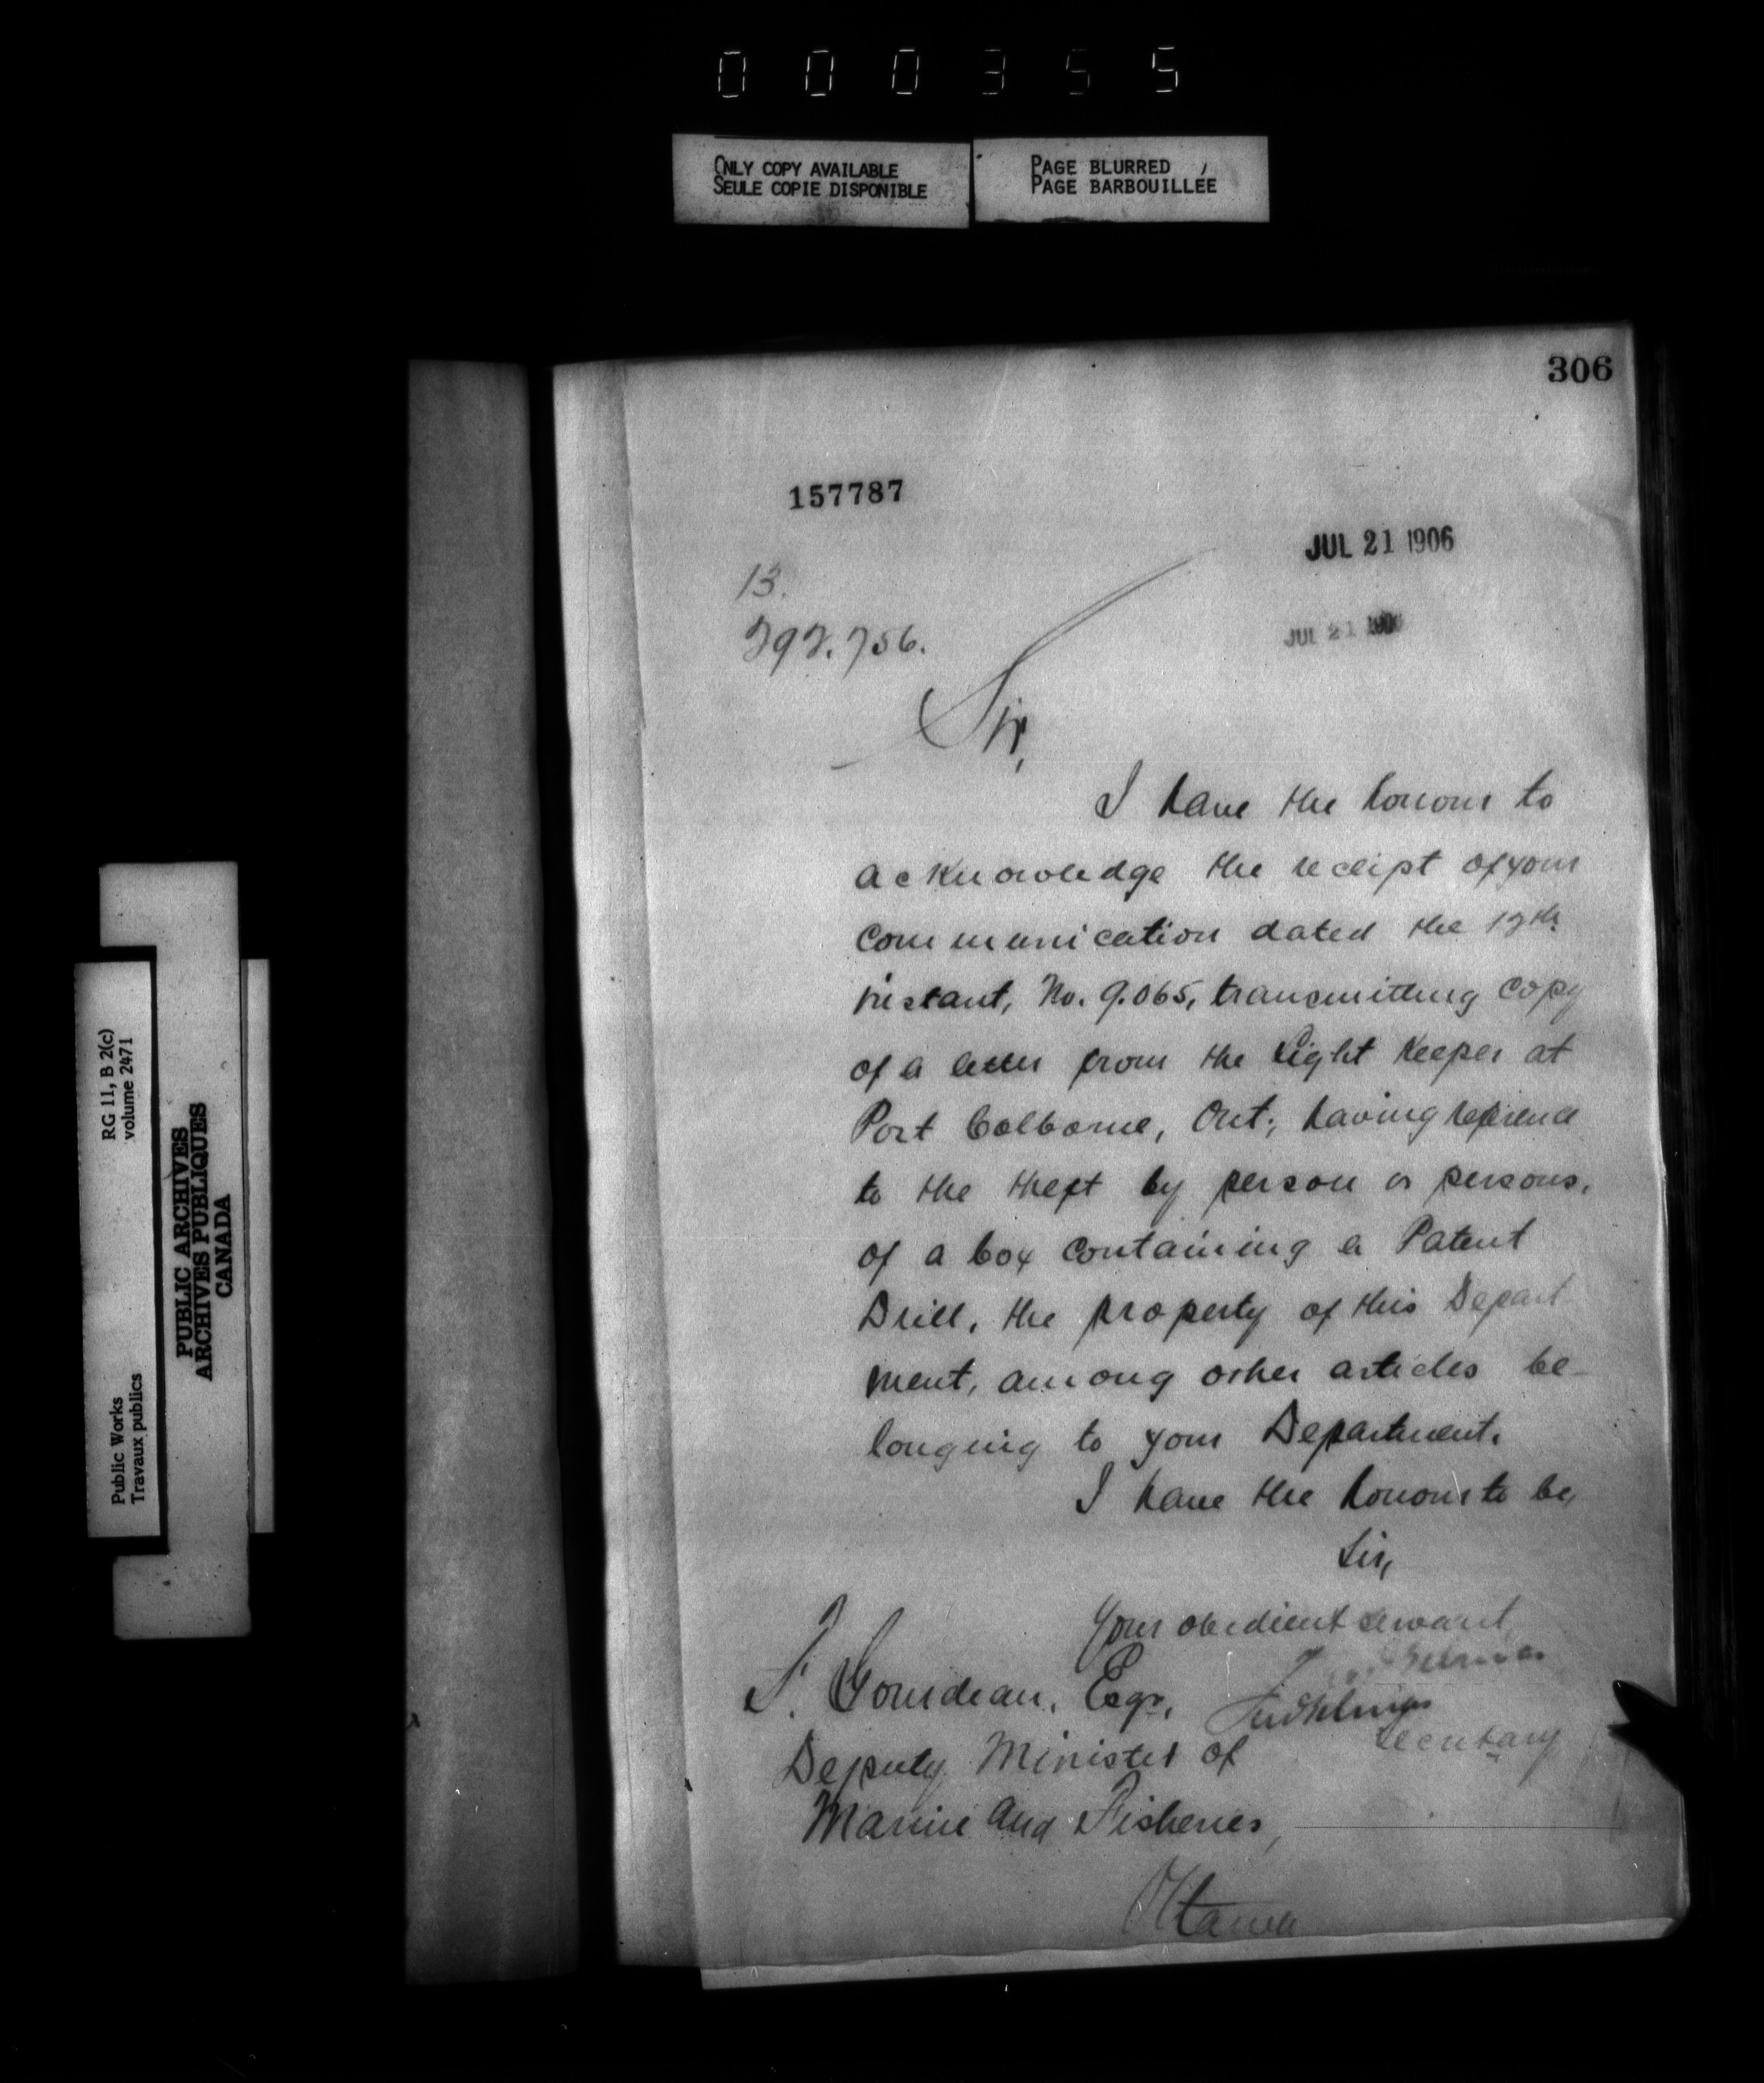 000355
ONLY COPY AVAILABLE
SEULE COPIE DISPONIBLE
PAGE BLURRED
PAGE BARBOUILLÉE
306
157787
JUL 21 1906
JUL 21 1906
13.
Sir,
I have the honour to
acknowledge the receipt of your
communication dated the
instant, No. 9.065, transmitting copy
of a letter from the Light Keeper at
Port Colborne, Ont., having reference
to the theft by person or persons,
of a box containing a Patent
Drill, the property of this Depart-
ment, among other articles be-
longing to your Department.
I have the honour to be,
Sir,
Your obedient servant
F. Gourdeau, Esqr,
Secretary
Deputy Minister of
Marine and Fisheries,
Ottawa
RG 11, B 2(c)
volume 2471
PUBLIC ARCHIVES
ARCHIVES PUBLIQUES
CANADA
Public Works
Travaux publics